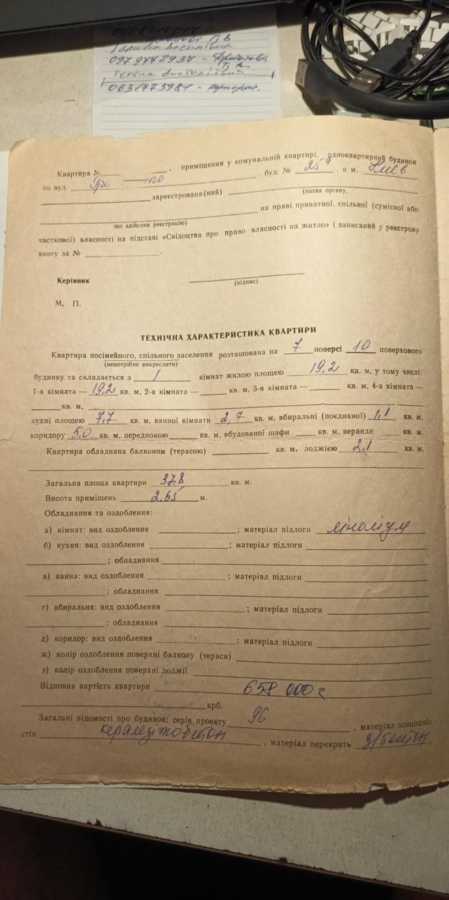 097 9448934 -
0631475984 -
Квартира № , приміщення у комунальній квартирі, одноквартирний будинок
по вул. буд. № 25 , в м. Київ
зареєстрована(ний) (назва органу,
на праві приватної, спільної (сумісної або
що здійснює реєстрацію)
часткової) власності на підставі «Свідоцтва про право власності на житло» і записаний у реєстрову
книгу за № .
Керівник (підпис)
М. П.
ТЕХНІЧНА ХАРАКТЕРИСТИКА КВАРТИРИ
Квартира посімейного, спільного заселення розташована на 7 поверсі 10 поверхового
(непотрібне викреслити)
будинку та складається з 1 кімнат жилою площею 19,2 кв. м, у тому числі:
1-а кімната — 19,2 кв. м, 2-а кімната — кв. м, 3-я кімната — кв. м, 4-а кімната —
кв. м,
кухні площею 7,7 кв. м, ванної кімнати 2,7 кв. м, вбиральні (поєднаної) 1,1 кв. м,
коридору 5,0 кв. м, передпокою кв. м, вбудованої шафи кв. м, веранди кв. м.
Квартира обладнана балконом (терасою) кв. м, лоджією 2,1 кв. м.
Загальна площа квартири 37,8 кв. м.
Висота приміщень 2,65 м.
Обладнання та оздоблення:
а) кімнат: вид оздоблення ; матеріал підлоги лінолеум
б) кухня: вид оздоблення ; матеріал підлоги
; обладнання
в) ванна: вид оздоблення ; матеріал підлоги
; обладнання
г) вбиральня: вид оздоблення ; матеріал підлоги
; обладнання
д) коридор: вид оздоблення ; матеріал підлоги
ж) колір оздоблення поверхні балкону (тераси)
з) колір оздоблення поверхні лоджії
Відповна вартість квартири 658 000
крб.
Загальні відомості про будинок: серія проекту 96 , матеріал зовнішніх
стін керамзітобетон , матеріал перекрить з/бетон